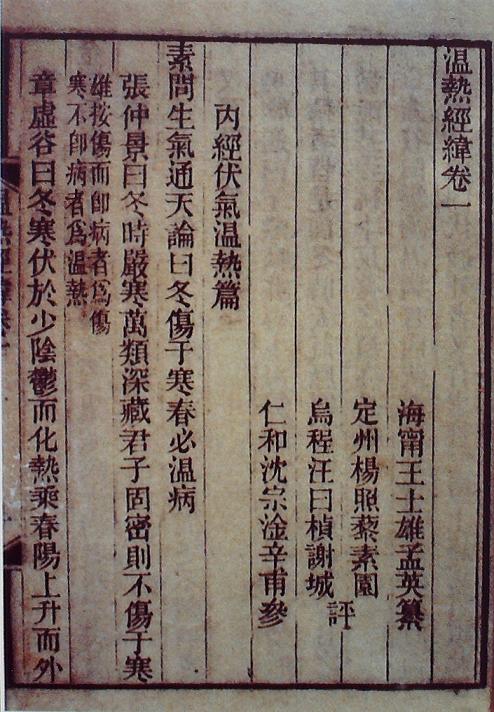 温熱經緯卷一
海甯王士雄孟英纂
定州楊照藜素園
評
烏程汪曰楨謝城
仁和沈宗淦辛甫參
內經伏氣溫熱篇
素問生氣通天論曰冬傷于寒春必温病
張仲景曰冬時嚴寒萬類深藏君子固密則不傷于寒
雄按傷而卽病者爲傷
寒不卽病者爲温熱
章虛谷曰冬寒伏於少陰鬱而化熱乘春陽上升而外